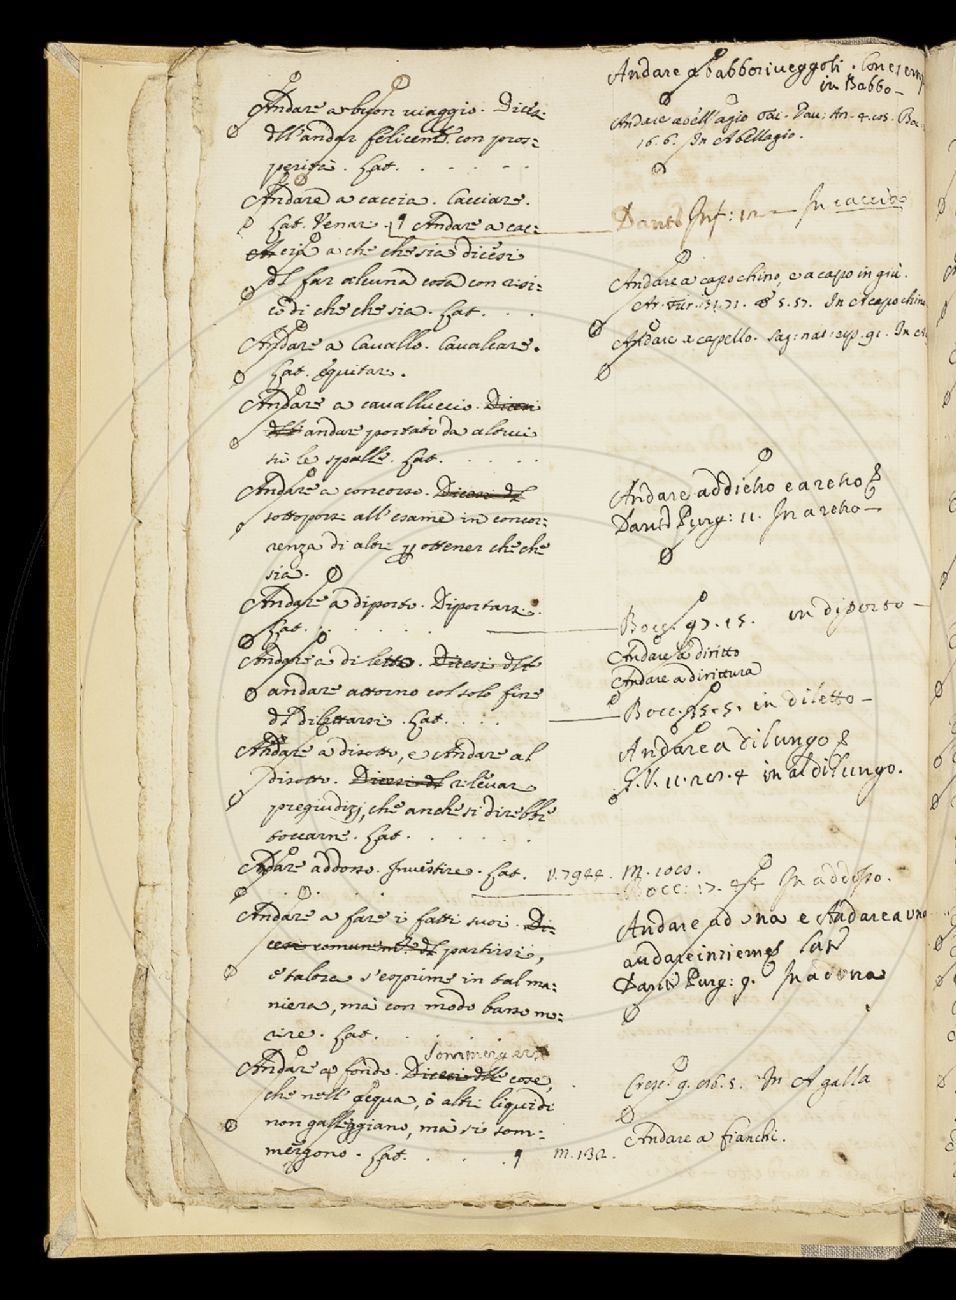 Andare a buon viaggio. Dicesi
dell'andar felicemte. con pros=
perità. Lat. . . . .
Andare a caccia. Cacciare.
Lat. Venar. ¶ Andare a cac=
cia a che che sia dicesi
del far alcuna cosa con risi=
co di che che sia. Lat. . . .
Andare a Cavallo. Cavalcare.
Lat. equitare.
Andare a cavalluccio. Dicesi
dell' andare portato da altrui
su le spalle. Lat. . . . . .
Andare a concorso. Dicesi del
sottoporsi all'esame in concor=
renza di altri ottener che che
sia.
Andare a diporto. Diportarsi.
Lat. . . . . .
Andare a diletto. Dicesi dell'
andare attorno col solo fine
di dilettarsi. Lat. . . .
Andare a disotto, e Andare al
disotto. Dicesi del rilevar
pregiudizj, che anche si direbbe
toccarne. Lat. . . . .
Andare addosso. Investire. Lat. v. 7944. m. 1060.
Andare a fare i fatti suoi. Di=
cesi comunemte. del partirsi,
e talora s'esprime in tal ma=
niera, ma con modo basso mo=
rire. Lat. . . .
sommergersi
Andare a fondo. Dicesi delle cose,
che nell'acqua, o altri liquidi
non galleggiano, ma si som=
mergono. Lat. . . . ¶ m. 132.
Andare a babboriveggoli.
in Babbo—
Andare a bell'agio
16. 6. In A bellagio.
Dante Inf: In caccia
Andare a capo chino, e a capo in giù.
5. 57. In A capo chino
Andare a capello.
Andare addietro e a retro
Dante Purg: 11. In a retro—
Bocc. 97. 15. in diporto—
Andare a diritto
Andare a dirittura
Bocc. 35. 5. in diletto—
Andare a dilungo
G. V. 11. in al dilungo.
Bocc: 17. In addosso.
Andare ad una e Andare a una
andare insieme
Dante Purg: 9. In ad una
Cresc. 9. In A galla
Andare a fianchi.